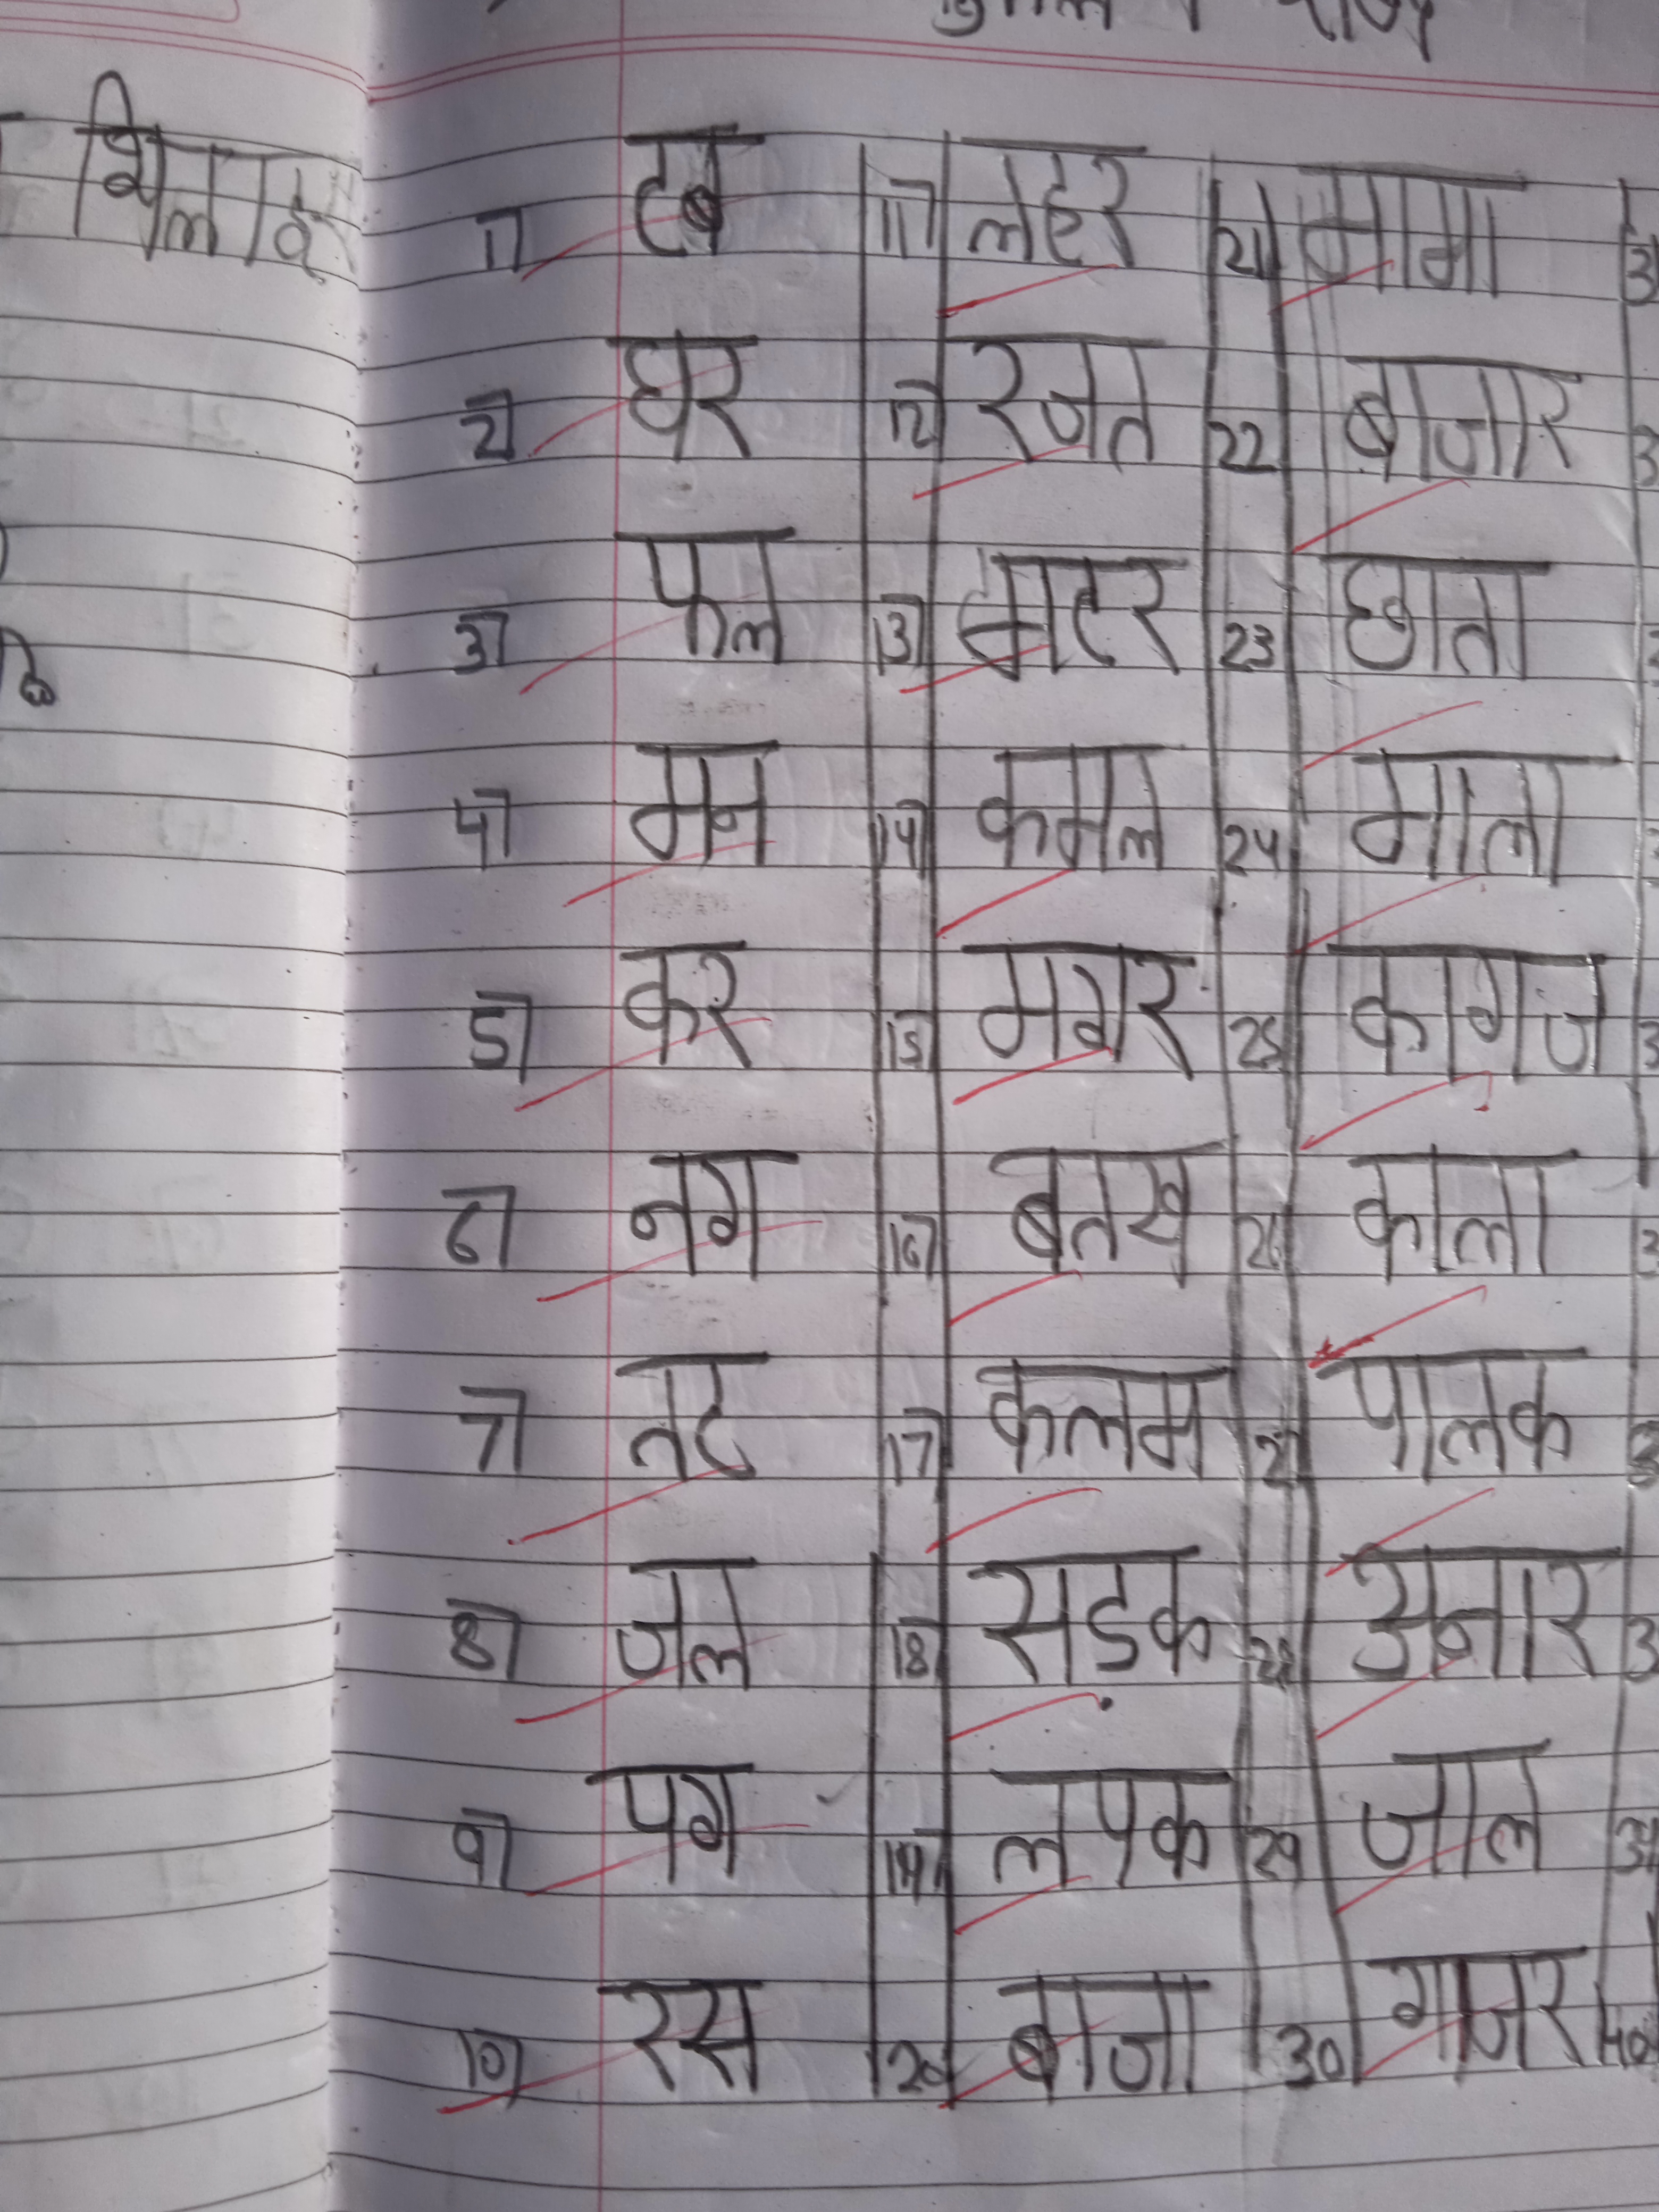 1) टब 11) लहर 21 मामा
2) घर 12) रजत 22 बाजार
3) फल 13) मटर 23 छाता
4) मन 14) कमल 24 माला
5) कर 15) मगर 25 कागज
6) नग 16) बतख 26 काला
7) तट 17) कलम 27 पालक
8) जल 18) सडक 28 अनार
9) पग 19) लपक 29 जाल
10) रस 20 बाजा 30 गाजर 40